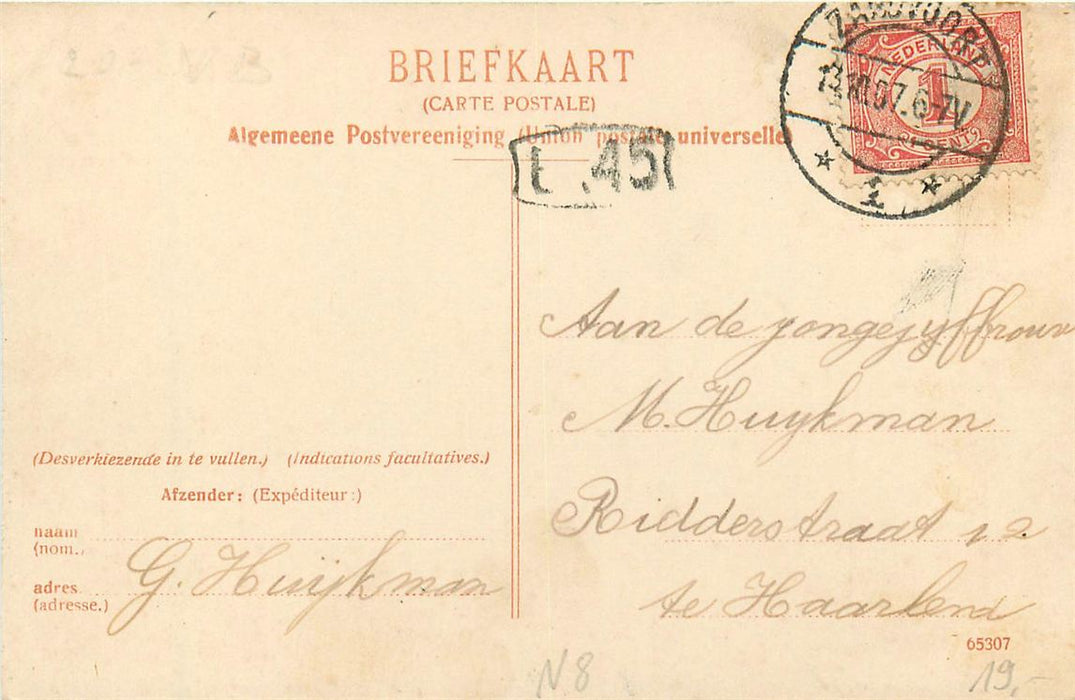 BRIEFKAART
(CARTE POSTALE)
Algemeene Postvereeniging (Union postale universelle)
ZANDVOORT
07.6-7V
1
NEDERLAND
1
CENT
.45
Aan de jongejuffrouw
M. Huijkman
Ridderstraat 12
te Haarlem
(Desverkiezende in te vullen.) (Indications facultatives.)
Afzender: (Expéditeur:)
naam
(nom.)
G. Huijkman
adres
(adresse.)
65307
N8
19.-